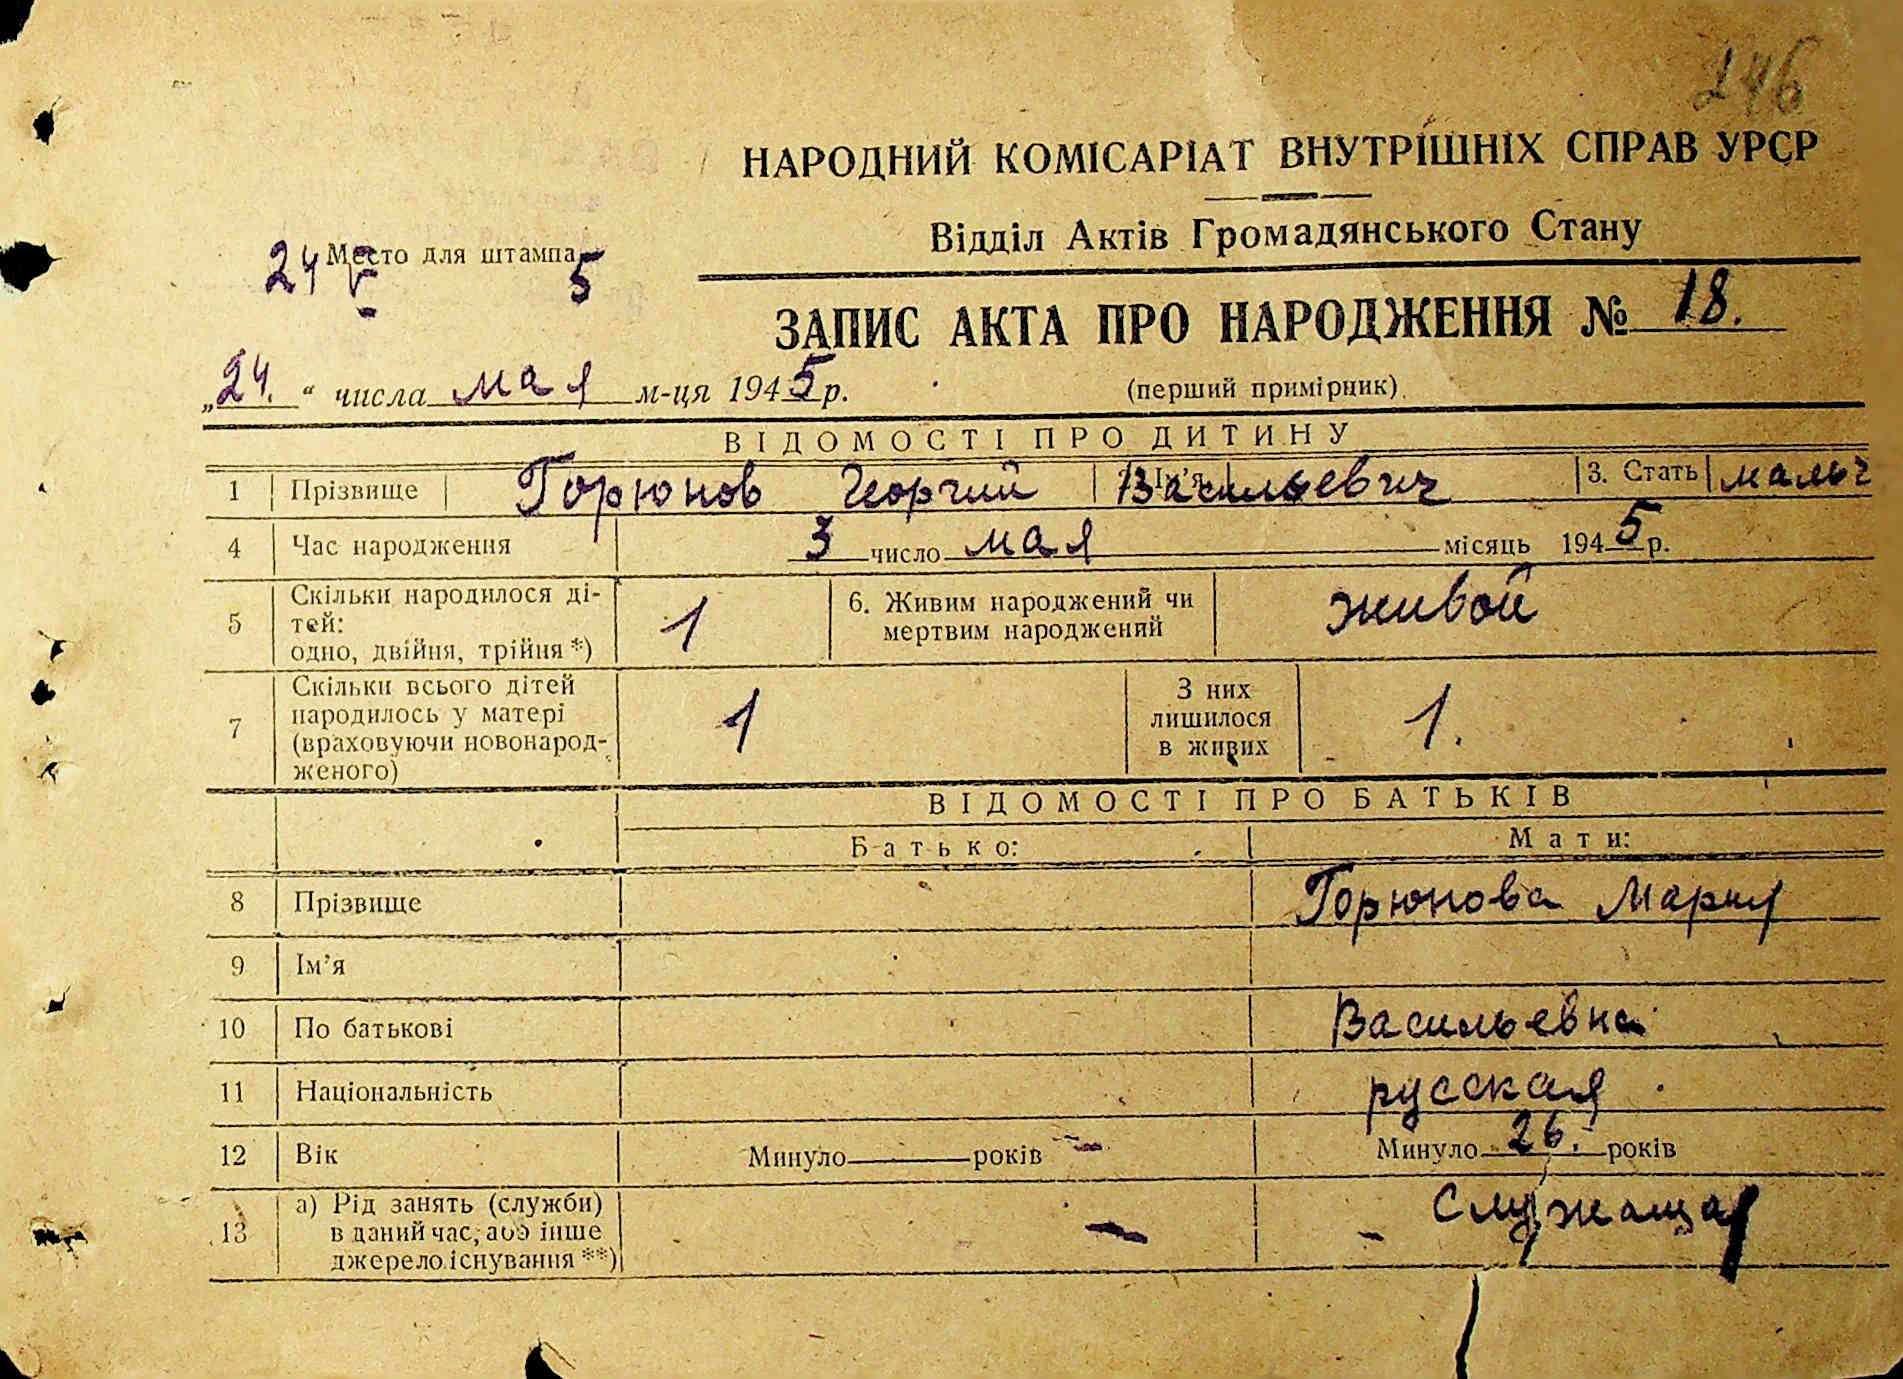 246
НАРОДНИЙ КОМІСАРІАТ ВНУТРІШНІХ СПРАВ УРСР
Відділ Актів Громадянського Стану
Место для штампа
24 V 5
ЗАПИС АКТА ПРО НАРОДЖЕННЯ № 18.
„24.“ числа мая м-ця 1945 р.
(перший примірник)
ВІДОМОСТІ ПРО ДИТИНУ
1 Прізвище Горюнов Георгий Ім'я Васильевич 3. Стать мальч
4 Час народження 3 число мая місяць 1945 р.
5 Скільки народилося ді-
тей:
одно, двійня, трійня *) 1
6. Живим народжений чи
мертвим народжений живой
7 Скільки всього дітей
народилось у матері
(враховуючи новонарод-
женого) 1
З них
лишилося
в живих 1.
ВІДОМОСТІ ПРО БАТЬКІВ
Батько: Мати:
8 Прізвище Горюнова Мария
9 Ім'я
10 По батькові Васильевна
11 Національність русская
12 Вік Минуло ——— років – Минуло 26. років
13 а) Рід занять (служби)
в даний час, або інше
джерело існування **) – – Служащая